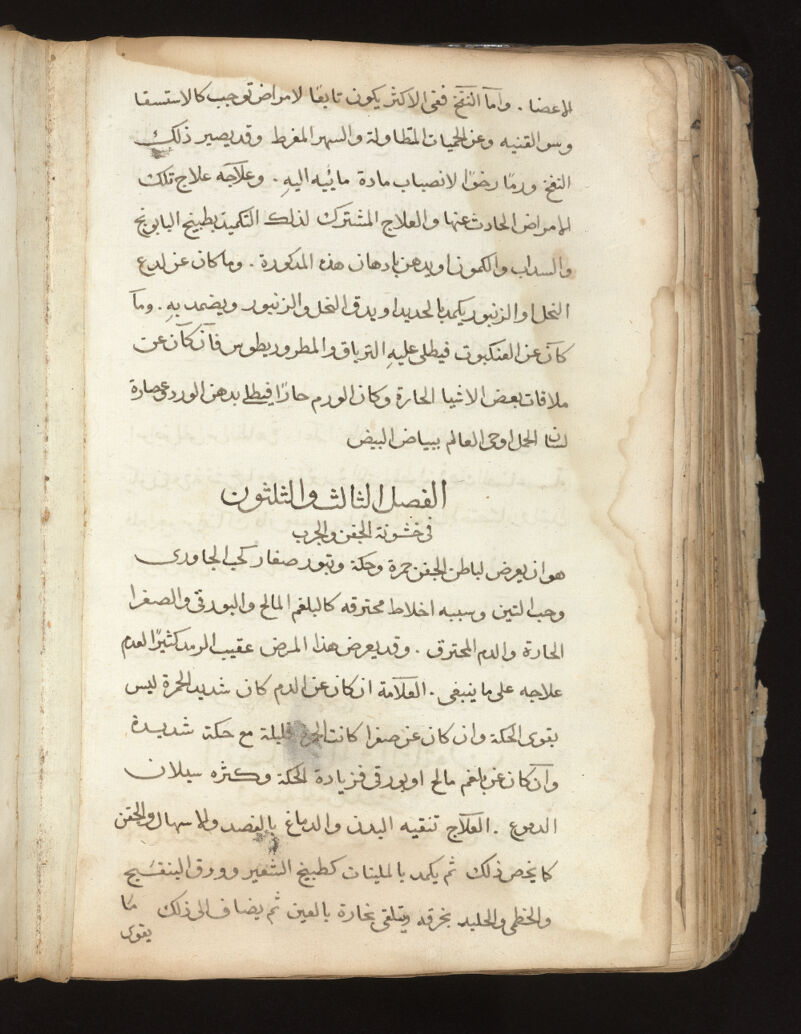 الاعضا . واما النفخ ففى الاكثر يكون تابعًا لامراض توجب كالاستسقا
وسو القنيه وعن الحميات المتطاولة والسهر المفرط وقد يصير ذلك
النفخ ورمًا رخوًا لانصباب مادة مائيه اليهِ . وعلاجه علاج تلك
الامراض الحادث عنها والعلاج المشترك لذلك التكميد بطبيخ البابونج
والسداب والكمون او يدهن بادهان هذه المذكورة . وما كان عن لدع
النحل او الزنبور يكمد بالحديد او يدق النحل والزنبور ويضمد بهِ . وما
كان عن العنكبوت فيطلى عليهِ الترياق والمطروريطوس فان كان عن
ملاقات بعض الاشيا الحارة وكان الورم حارًا فيطلى بدهن الورد وعصارة
لسان الحمل او حى العالم ببياض البيض
الفصل الثالث والثلثون
فى خشونة الجفن والجرب
هو ان يعرض لباطن الجفن حمرة وحكة وبثور صغار كحب الجاورى
وحب التين وسببه اخلاط محترقه كالبلغم المالح والبورقى والصفرا
الحارة والدم المحترق . وقد يعرض هذا المرض عقيب الرمد كثيرًا لعدم
علاجه على ما ينبغى . العلامة ان كان عن الدم كان شديد الحمرة ليس
بقوى الحكة وان كان عن صفرا كانت الحمرة قليلة مع حكة شديدة
وان كان عن بلغم مالح او بورقى فزيادة الحكة وكثره سيلان
الدموع . العلاج تنقيه البدن والدماغ بالفصد والاسهال والحقن
كما يخص ذلك ثم يكمد بالملينات كطبيخ الشعير وورق البنفسج
والخطمى والحلبه بخرقه ويتلقى بخاره بالعين ثم يضاف الى ذلك مما
يقوى